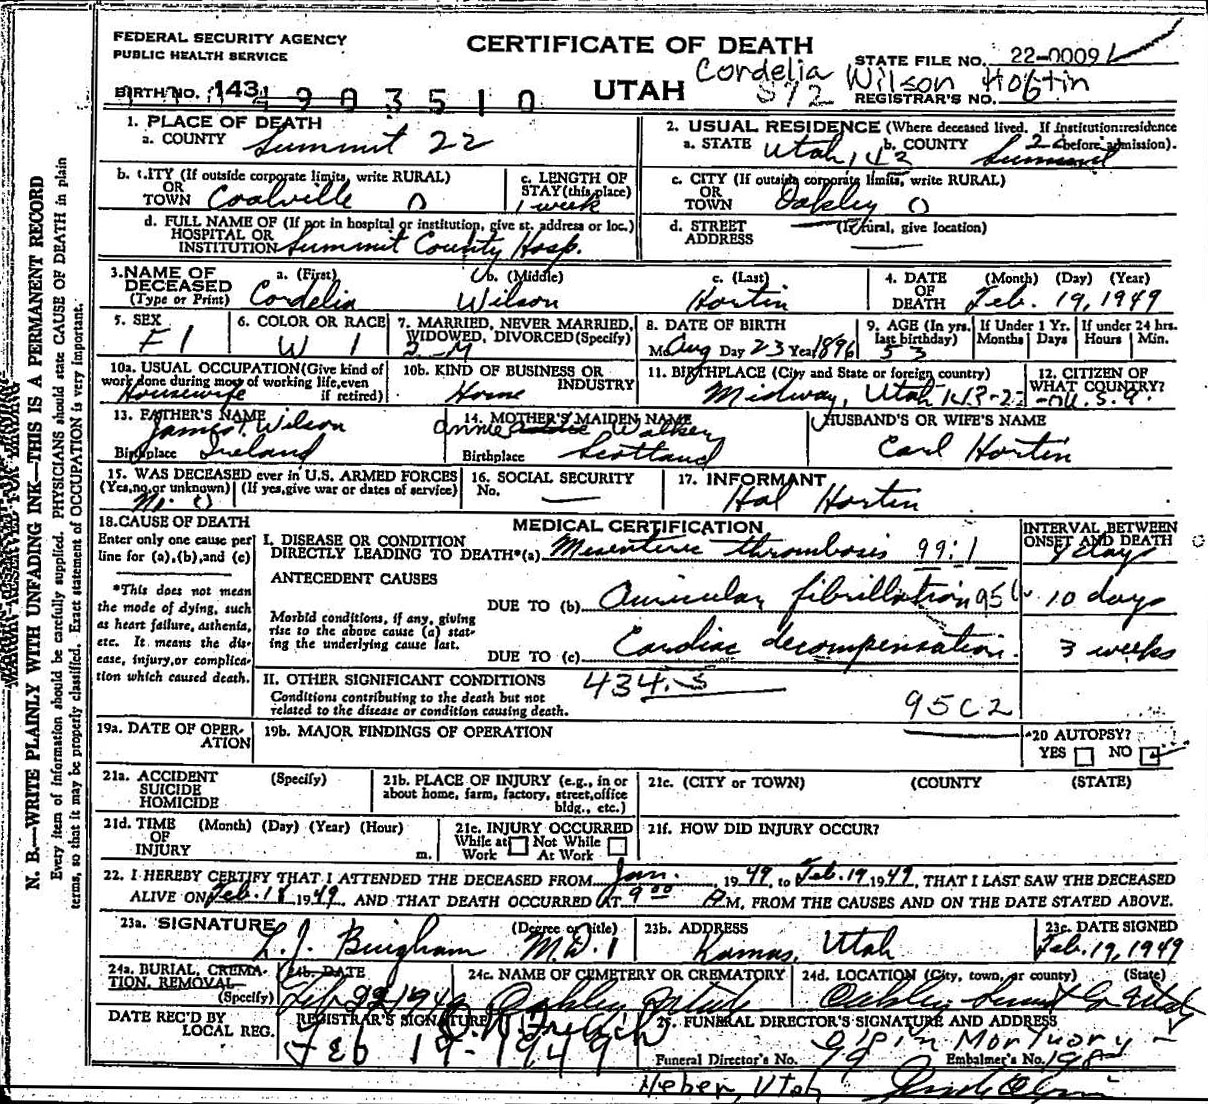 FEDERAL SECURITY AGENCY
PUBLIC HEALTH SERVICE
CERTIFICATE OF DEATH
UTAH
STATE FILE NO. 22-0091
Cordelia Wilson Hortin
BIRTH NO. 143 4903510
572
REGISTRAR'S NO. 6
1. PLACE OF DEATH
a. COUNTY Summit 22
2. USUAL RESIDENCE (Where deceased lived. If institution:residence before admission).
a. STATE Utah, 143 b. COUNTY Summit 22
b. CITY (If outside corporate limits, write RURAL) OR TOWN Coalville 0
c. LENGTH OF STAY (this place) 1 week
c. CITY (If outside corporate limits, write RURAL) OR TOWN Oakley 0
d. FULL NAME OF (If not in hospital or institution, give st. address or loc.) HOSPITAL OR INSTITUTION Summit County Hosp.
d. STREET ADDRESS (If rural, give location)
3. NAME OF DECEASED (Type or Print)
a. (First) Cordelia
b. (Middle) Wilson
c. (Last) Hortin
4. DATE OF DEATH (Month) (Day) (Year) Feb. 19, 1949
5. SEX F 1
6. COLOR OR RACE W 1
7. MARRIED, NEVER MARRIED, WIDOWED, DIVORCED(Specify) 2-M
8. DATE OF BIRTH Mo Aug Day 23 Year 1896
9. AGE (In yrs. last birthday) 53
If Under 1 Yr. Months Days
If under 24 hrs. Hours Min.
10a. USUAL OCCUPATION(Give kind of work done during most of working life, even if retired) Housewife
10b. KIND OF BUSINESS OR INDUSTRY Home
11. BIRTHPLACE (City and State or foreign country) Midway, Utah 143-22
12. CITIZEN OF WHAT COUNTRY? U.S.A.
13. FATHER'S NAME James Wilson
Birthplace Ireland
14. MOTHER'S MAIDEN NAME Annie Walker
Birthplace Scotland
HUSBAND'S OR WIFE'S NAME
Earl Hortin
15. WAS DECEASED ever in U.S. ARMED FORCES
(Yes, no, or unknown) (If yes, give war or dates of service)
No. 0
16. SOCIAL SECURITY No. —
17. INFORMANT
Hal Hortin
18. CAUSE OF DEATH
Enter only one cause per line for (a), (b), and (c)
*This does not mean the mode of dying, such as heart failure, asthenia, etc. It means the disease, injury, or complication which caused death.
MEDICAL CERTIFICATION
INTERVAL BETWEEN ONSET AND DEATH
I. DISEASE OR CONDITION DIRECTLY LEADING TO DEATH*(a) Mesenteric thrombosis 99:1 days
ANTECEDENT CAUSES
DUE TO (b) Auricular fibrillation 95 10 days
Morbid conditions, if any, giving rise to the above cause (a) stating the underlying cause last.
DUE TO (c) Cardiac decompensation. 3 weeks
II. OTHER SIGNIFICANT CONDITIONS 434.3
Conditions contributing to the death but not related to the disease or condition causing death.
95C2
19a. DATE OF OPERATION
19b. MAJOR FINDINGS OF OPERATION
20 AUTOPSY? YES NO
21a. ACCIDENT SUICIDE HOMICIDE (Specify)
21b. PLACE OF INJURY (e.g., in or about home, farm, factory, street, office bldg., etc.)
21c. (CITY or TOWN) (COUNTY) (STATE)
21d. TIME OF INJURY (Month) (Day) (Year) (Hour) m.
21e. INJURY OCCURRED While at Work Not While At Work
21f. HOW DID INJURY OCCUR?
22. I HEREBY CERTIFY THAT I ATTENDED THE DECEASED FROM Jan. , 1949 to Feb. 19 1949, THAT I LAST SAW THE DECEASED
ALIVE ON Feb. 18 1949, AND THAT DEATH OCCURRED AT 9:00 M, FROM THE CAUSES AND ON THE DATE STATED ABOVE.
23a. SIGNATURE (Degree or title) L. J. Bingham M.D. 1
23b. ADDRESS Kamas, Utah
23c. DATE SIGNED Feb. 19, 1949
24a. BURIAL, CREMATION, REMOVAL (Specify)
24b. DATE Feb 22 1949
24c. NAME OF CEMETERY OR CREMATORY Oakley
24d. LOCATION (City, town, or county) (State) Oakley Summit Co Utah
DATE REC'D BY LOCAL REG.
REGISTRAR'S SIGNATURE
Feb 19-1949
25. FUNERAL DIRECTOR'S SIGNATURE AND ADDRESS
Olpin Mortuary
Funeral Director's No. 99 Embalmer's No. 198
Heber, Utah
N. B.—WRITE PLAINLY WITH UNFADING INK—THIS IS A PERMANENT RECORD
Every item of information should be carefully supplied. PHYSICIANS should state CAUSE OF DEATH in plain
terms, so that it may be properly classified. Exact statement of OCCUPATION is very important.